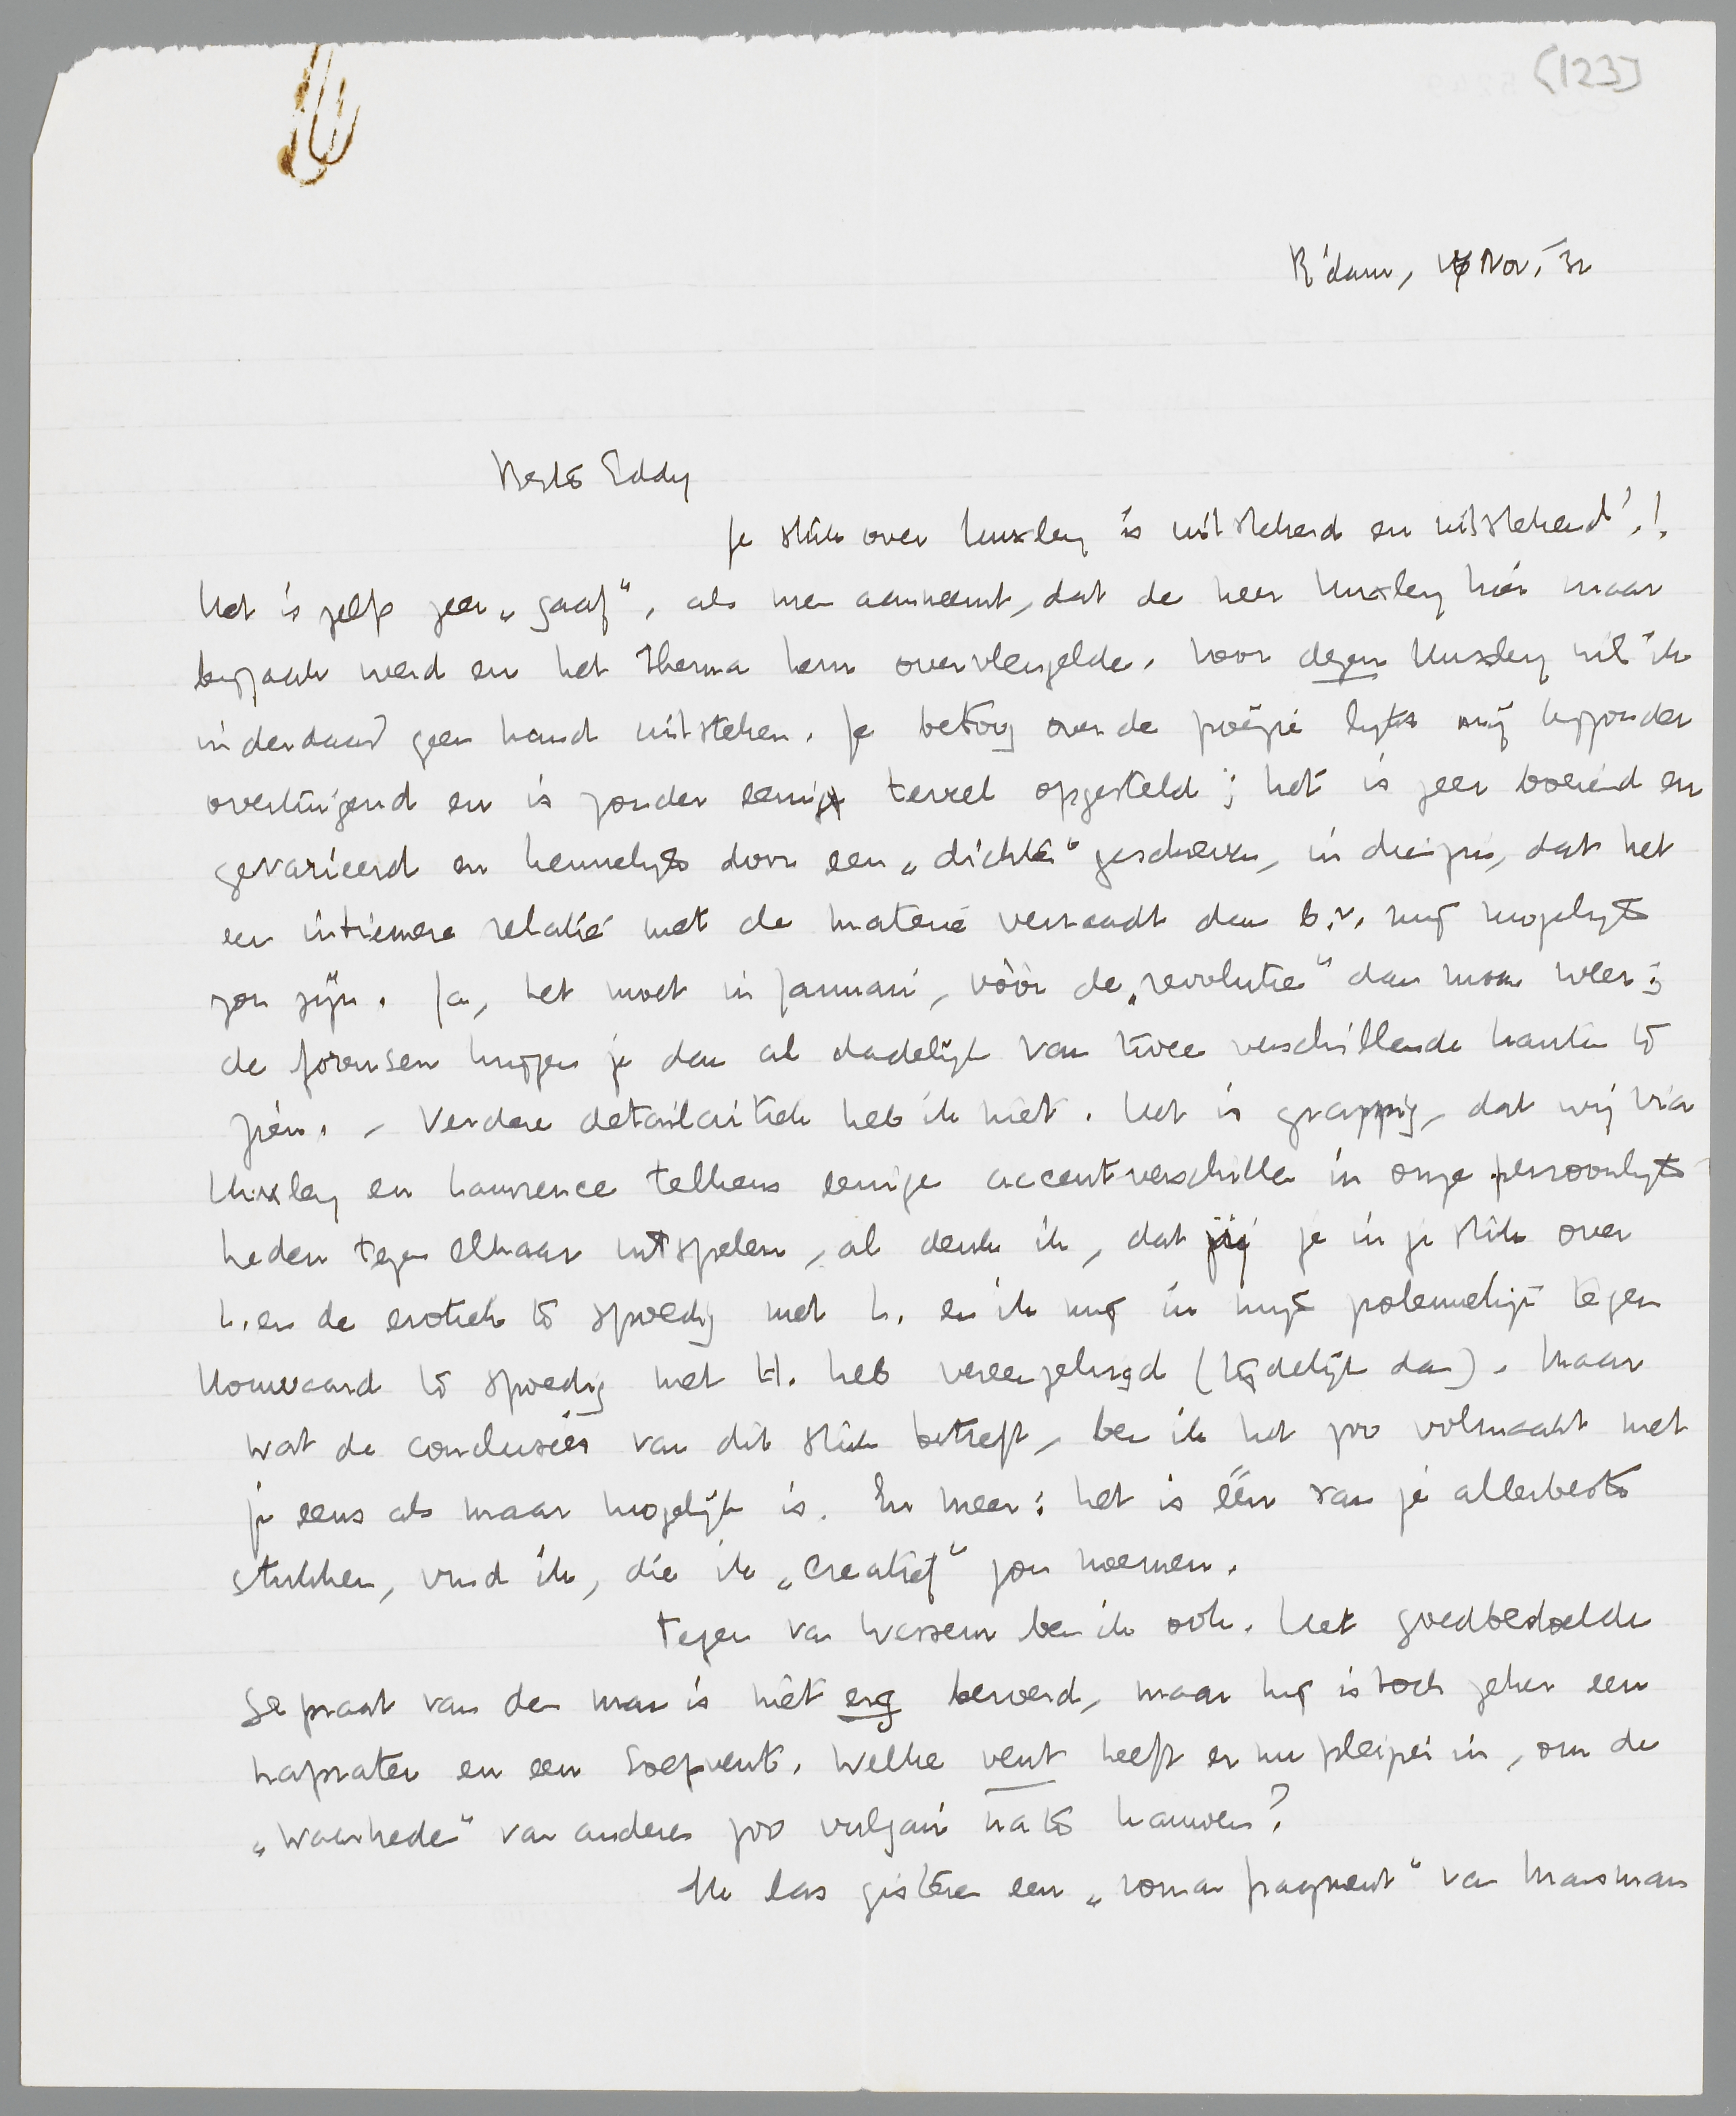 [123]
R'dam, Nov. '32
Beste Eddy
Je stuk over Huxley is uitstekend en uitstekend!!
Het is zelfs zeer „gaaf", als men aanneemt, dat de heer Huxley hier maar
bijzaak werd en het thema hem overvleugelde. Voor dezen Huxley wil ik
inderdaad geen hand uitsteken. Je betoog over de poëzie lijkt mij bijzonder
overtuigend en is zonder eenig texel opgesteld; het is zeer boeiend en
gevarieerd en kennelijk door een „dichter" geschreven, in dien zin, dat het
een intiemere relatie met de materie verraadt dan b.v. mij mogelijk
zou zijn. Ja, het moet in Januari, vóór de „revolutie" dan maar weer;
de forensen krijgen je dan al dadelijk van twee verschillende kanten te
zien. – Verdere detailcritiek heb ik niet. Het is grappig, dat wij via
Huxley en Lawrence telkens eenige accentverschillen in onze persoonlijk-
heden tegen elkaar uitspelen, al denk ik, dat jij je in je stuk over
L. en de erotiek te spoedig met L. en ik mij in mijn polemiekje tegen
Houwaard te spoedig met H. heb vereenzelvigd (tijdelijk dan). Maar
wat de conclusies van dit stuk betreft, ben ik het zoo volmaakt met
je eens als maar mogelijk is. En meer: het is één van je allerbeste
stukken, vind ik, die ik „creatief" zou noemen.
Tegen van Wessem ben ik ook. Het goedbedoelde
gepraat van den man is niet erg beroerd, maar hij is toch zeker een
naprater en een soepvent. Welke vent heeft er nu pleizier in, om de
„waarheden" van anderen zoo vulgair na te kauwen?
Ik las gisteren een „romanfragment" van Marsman